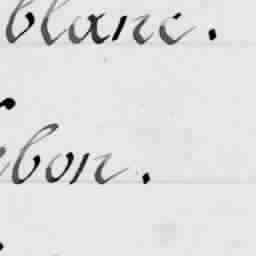 blanc.
bon.